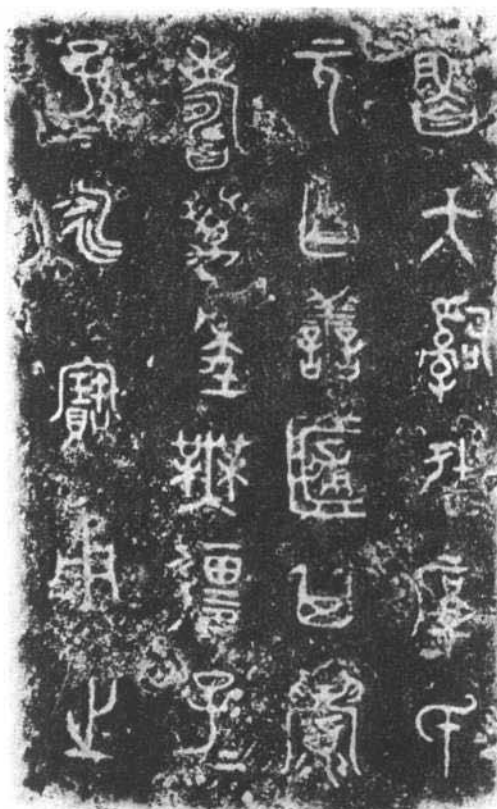 魯大𤔲徒厚氏
元乍譱𠤳其眉
壽萬年無疆子=
孫=永寶用之